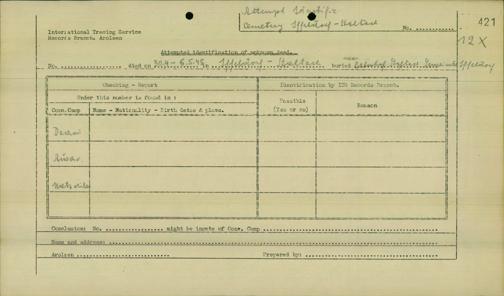 Attempt Identific.
Cemetery Iffeldorf - Staltach
- 421
International Tracing Service
Records Branch, Arolsen
No. ............
12X
Attempted identification of unknown dead.
No. .......... died on 30.4-6.5.45 in Iffeldorf - Staltach buried Iffeldorf
Checking - Report
Identification by ITS Records Branch.
Under this number is found in :
Possible
(Yes or no)
Reason
Conc.Camp
Name - Nationality - Birth dates & place.
Dachau
Conclusion: No. .................. might be inmate of Conc. Camp ..................
Name and address: ..................
Arolsen ..................
Prepared by: ..................